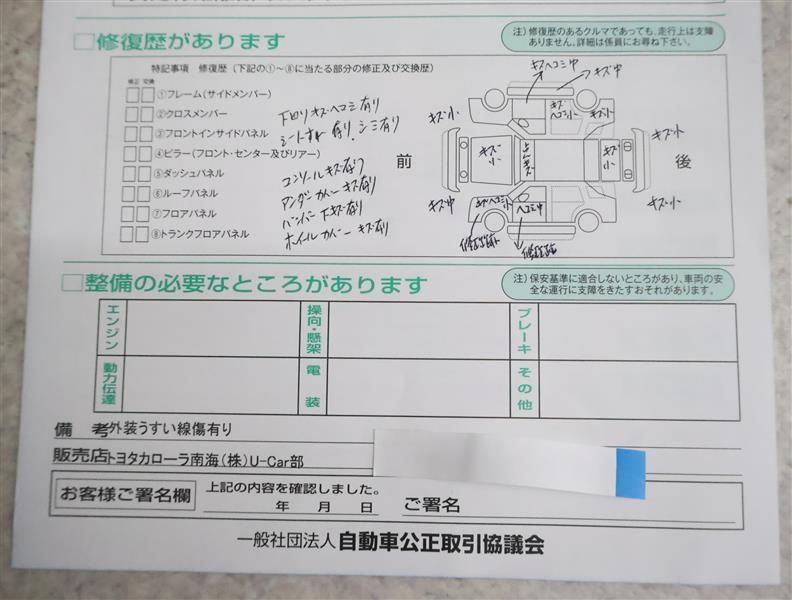 □修復歴があります
注）修復歴のあるクルマであっても、走行上は支障ありません。詳細は係員にお尋ね下さい。
特記事項 修復歴（下記の①～⑧に当たる部分の修正及び交換歴）
修正 交換
①フレーム（サイドメンバー）
②クロスメンバー
③フロントインサイドパネル
④ピラー（フォロント・センター及びリアー）
⑤ダッシュパネル
⑥ルーフパネル
⑦フロアパネル
⑧トランクフロアパネル
下回りキズ・ヘコミ有り
シートすれ有り、シミ有り
コンソールキズ有り
アンダーカバーキズ有り
バンパー下キズ有り
ホイールカバーキズ有り
前
後
キズヘコミ中
キズ中
キズ小
キズ
ヘコミ小
キズ小
キズ小
キズ小
キズ小
キズ中
ヘコミ中
キズ小
□整備の必要なところがあります
注）保安基準に適合しないところがあり、車両の安全な運行に支障をきたすおそれがあります。
エンジン
操向・懸架
ブレーキ
動力伝達
電装
その他
備考 外装うすい線傷有り
販売店 トヨタカローラ南海（株）U-Car部
お客様ご署名欄
上記の内容を確認しました。
年 月 日
ご署名
一般社団法人 自動車公正取引協議会